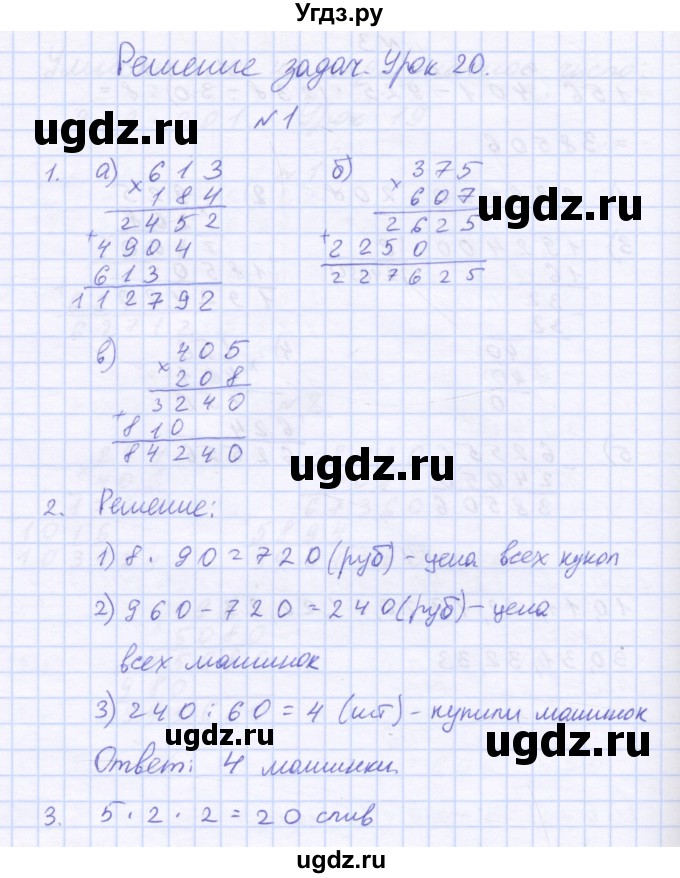 Угдз.ру
Решение задач. Урок 20.
ugdz.ru
№1
1. а) 613 б) 375
× 184 × 607
ugdz.ru
2452 2625
+ 4904 + 2250
613 227625
112792
в) 405
× 208
3240
+ 810
84240
ugdz.ru
2. Решение:
1) 8 · 90 = 720 (руб) - цена всех кукол
2) 960 - 720 = 240 (руб) - цена
всех машинок
3) 240 : 60 = 4 (шт) - купили машинок
ugdz.ru
ugdz.ru
Ответ: 4 машинки.
3. 5 · 2 · 2 = 20 слив
ugdz.ru